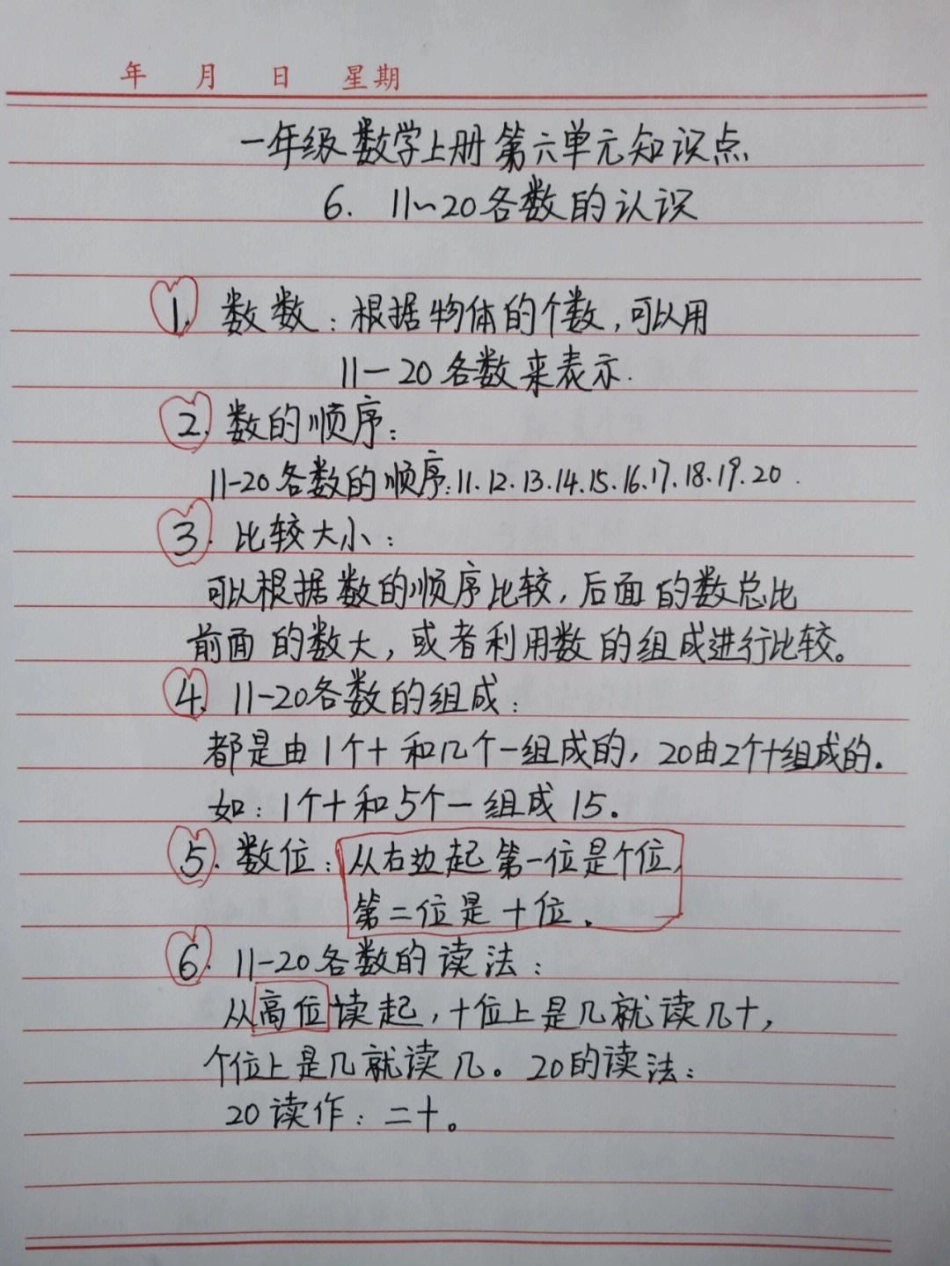 年 月 日 星期
一年级数学上册第六单元知识点
6. 11~20各数的认识
1. 数数：根据物体的个数，可以用
11—20各数来表示.
2. 数的顺序：
11-20各数的顺序：11.12.13.14.15.16.17.18.19.20.
3. 比较大小：
可以根据数的顺序比较，后面的数总比
前面的数大，或者利用数的组成进行比较。
4. 11-20各数的组成：
都是由1个十和几个一组成的，20由2个十组成的.
如：1个十和5个一组成15.
5. 数位：从右边起第一位是个位，
第二位是十位.
6. 11-20各数的读法：
从高位读起，十位上是几就读几十，
个位上是几就读几。20的读法：
20读作：二十。